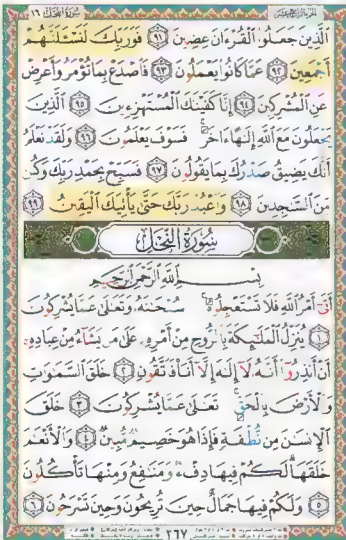 سُورَةُ النَّحْلِ ١٦
الَّذِينَ جَعَلُوا الْقُرْءَانَ عِضِينَ ٩١ فَوَرَبِّكَ لَنَسْـَٔلَنَّهُمْ
أَجْمَعِينَ ٩٢ عَمَّا كَانُوا يَعْمَلُونَ ٩٣ فَاصْدَعْ بِمَا تُؤْمَرُ وَأَعْرِضْ
عَنِ الْمُشْرِكِينَ ٩٤ إِنَّا كَفَيْنَاكَ الْمُسْتَهْزِءِينَ ٩٥ الَّذِينَ
يَجْعَلُونَ مَعَ اللَّهِ إِلَـٰهًا ءَاخَرَ فَسَوْفَ يَعْلَمُونَ ٩٦ وَلَقَدْ نَعْلَمُ
أَنَّكَ يَضِيقُ صَدْرُكَ بِمَا يَقُولُونَ ٩٧ فَسَبِّحْ بِحَمْدِ رَبِّكَ وَكُن
مِّنَ السَّـٰجِدِينَ ٩٨ وَاعْبُدْ رَبَّكَ حَتَّىٰ يَأْتِيَكَ الْيَقِينُ ٩٩
سُورَةُ النَّحْلِ
بِسْمِ اللَّهِ الرَّحْمَـٰنِ الرَّحِيمِ
أَتَىٰ أَمْرُ اللَّهِ فَلَا تَسْتَعْجِلُوهُ سُبْحَـٰنَهُ وَتَعَـٰلَىٰ عَمَّا يُشْرِكُونَ
١ يُنَزِّلُ الْمَلَـٰئِكَةَ بِالرُّوحِ مِنْ أَمْرِهِ عَلَىٰ مَن يَشَاءُ مِنْ عِبَادِهِ
أَنْ أَنذِرُوا أَنَّهُ لَا إِلَـٰهَ إِلَّا أَنَا فَاتَّقُونِ ٢ خَلَقَ السَّمَـٰوَٰتِ
وَالْأَرْضَ بِالْحَقِّ تَعَـٰلَىٰ عَمَّا يُشْرِكُونَ ٣ خَلَقَ
الْإِنسَـٰنَ مِن نُّطْفَةٍ فَإِذَا هُوَ خَصِيمٌ مُّبِينٌ ٤ وَالْأَنْعَـٰمَ
خَلَقَهَا لَكُمْ فِيهَا دِفْءٌ وَمَنَـٰفِعُ وَمِنْهَا تَأْكُلُونَ
٥ وَلَكُمْ فِيهَا جَمَالٌ حِينَ تُرِيحُونَ وَحِينَ تَسْرَحُونَ ٦
٢٦٧